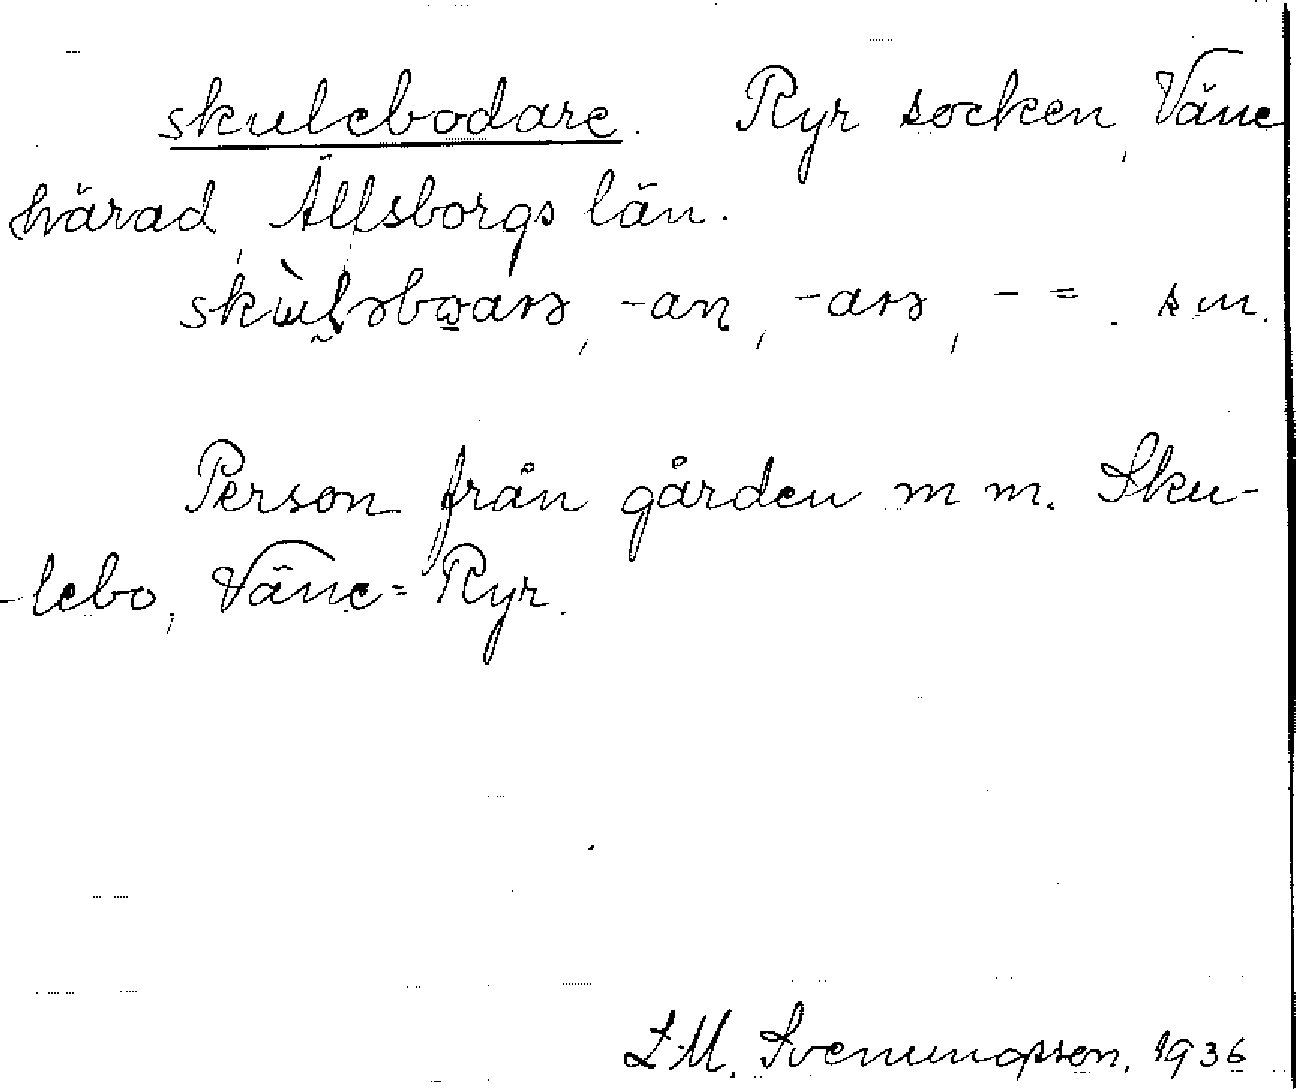 skulebodare. Ryr socken, Väne
härad, Älfsborgs län.
skùləbωarə, -an, -arə, - =. sm.
Person från gården m m. Sku-
-lebo, Väne-Ryr.
L.M. Svenungsson, 1936